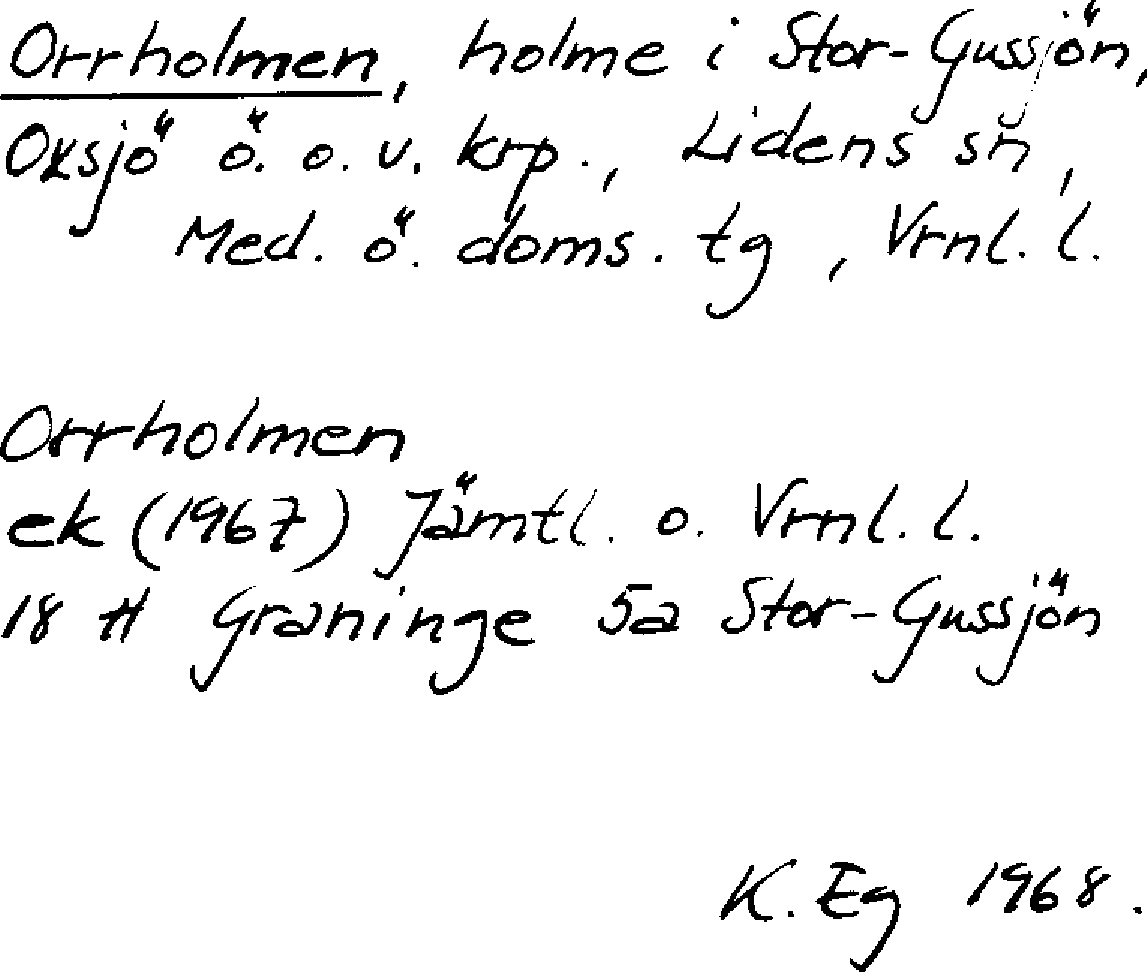 Orrholmen, holme i Stor-Gussjön,
Oxsjö ö. o. v. krp., Lidens sn,
Med. ö. doms. tg, Vrnl. l.
Orrholmen
ek (1967) Jämtl. o. Vrnl. l.
18 H Graninge 5a Stor-Gussjön
K. Eg 1968.